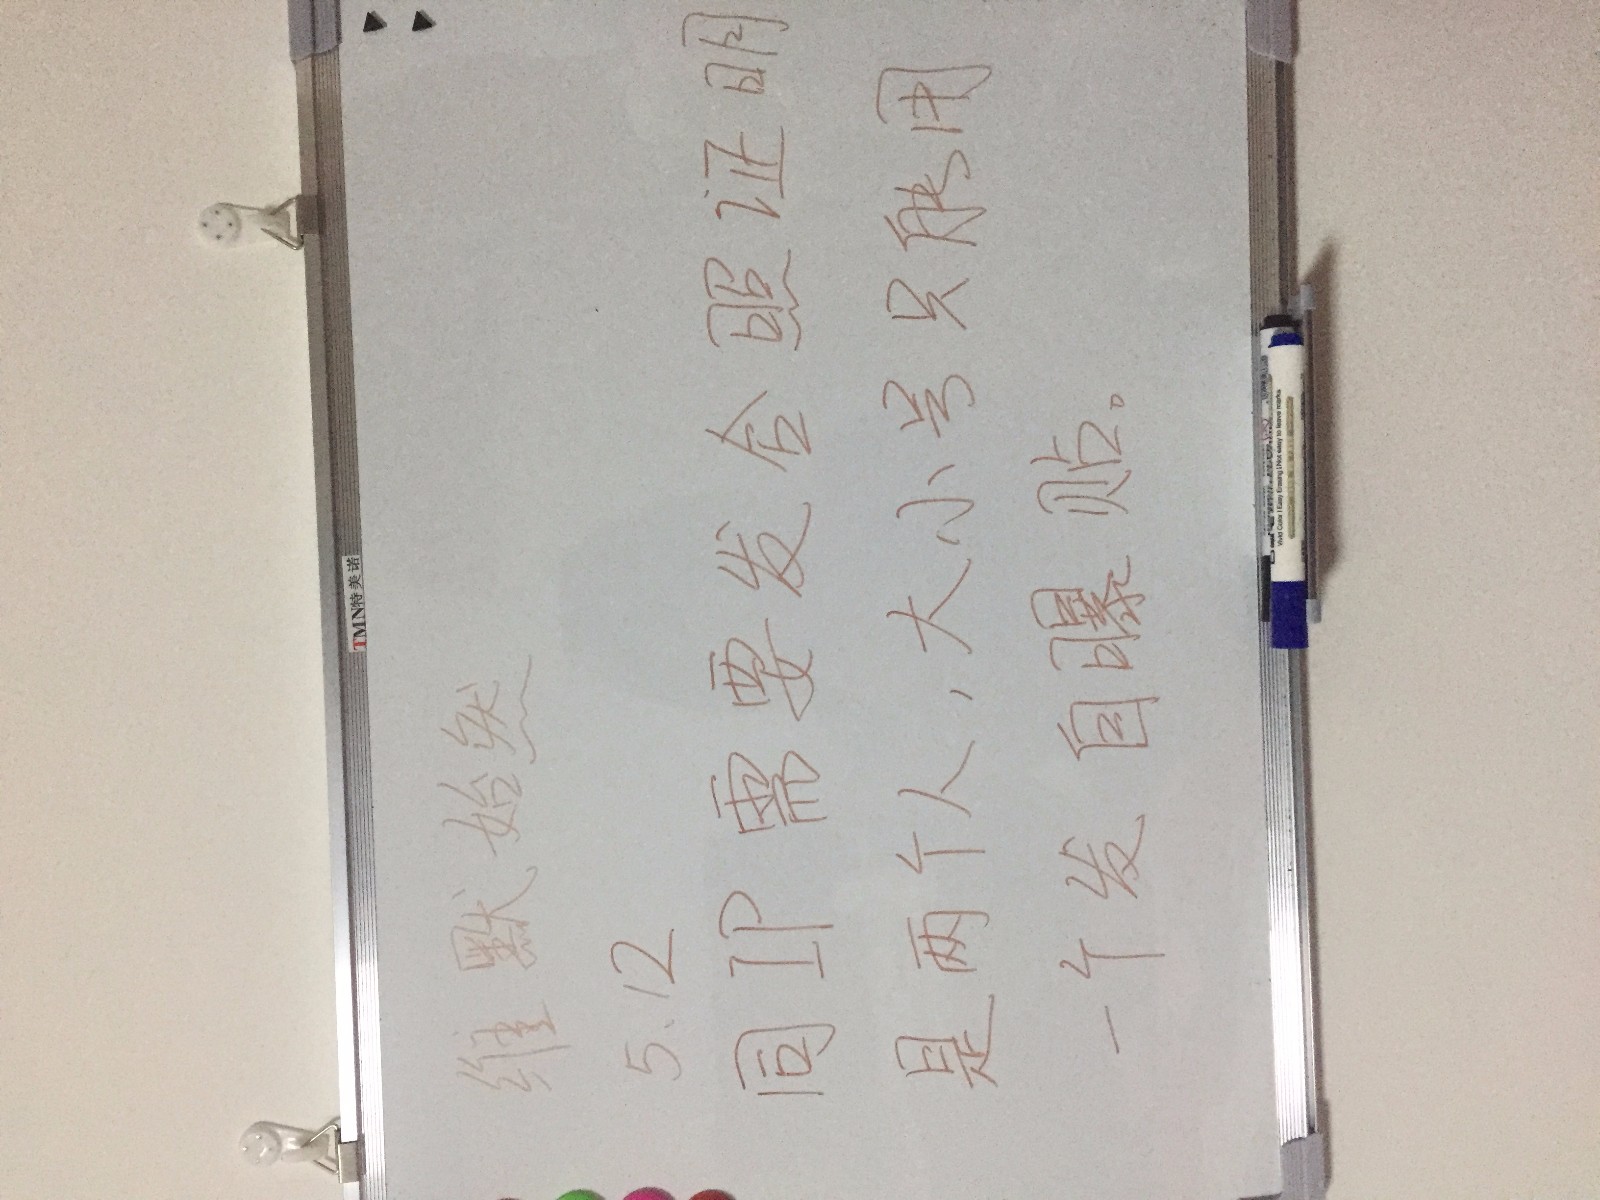 TMN特美诺
维默始然
5.12
同IP需要发合照证明
是两个人,大小号只能用
一个发自曝贴。
Vivid Color / Easy Erasing / Not easy to leave marks